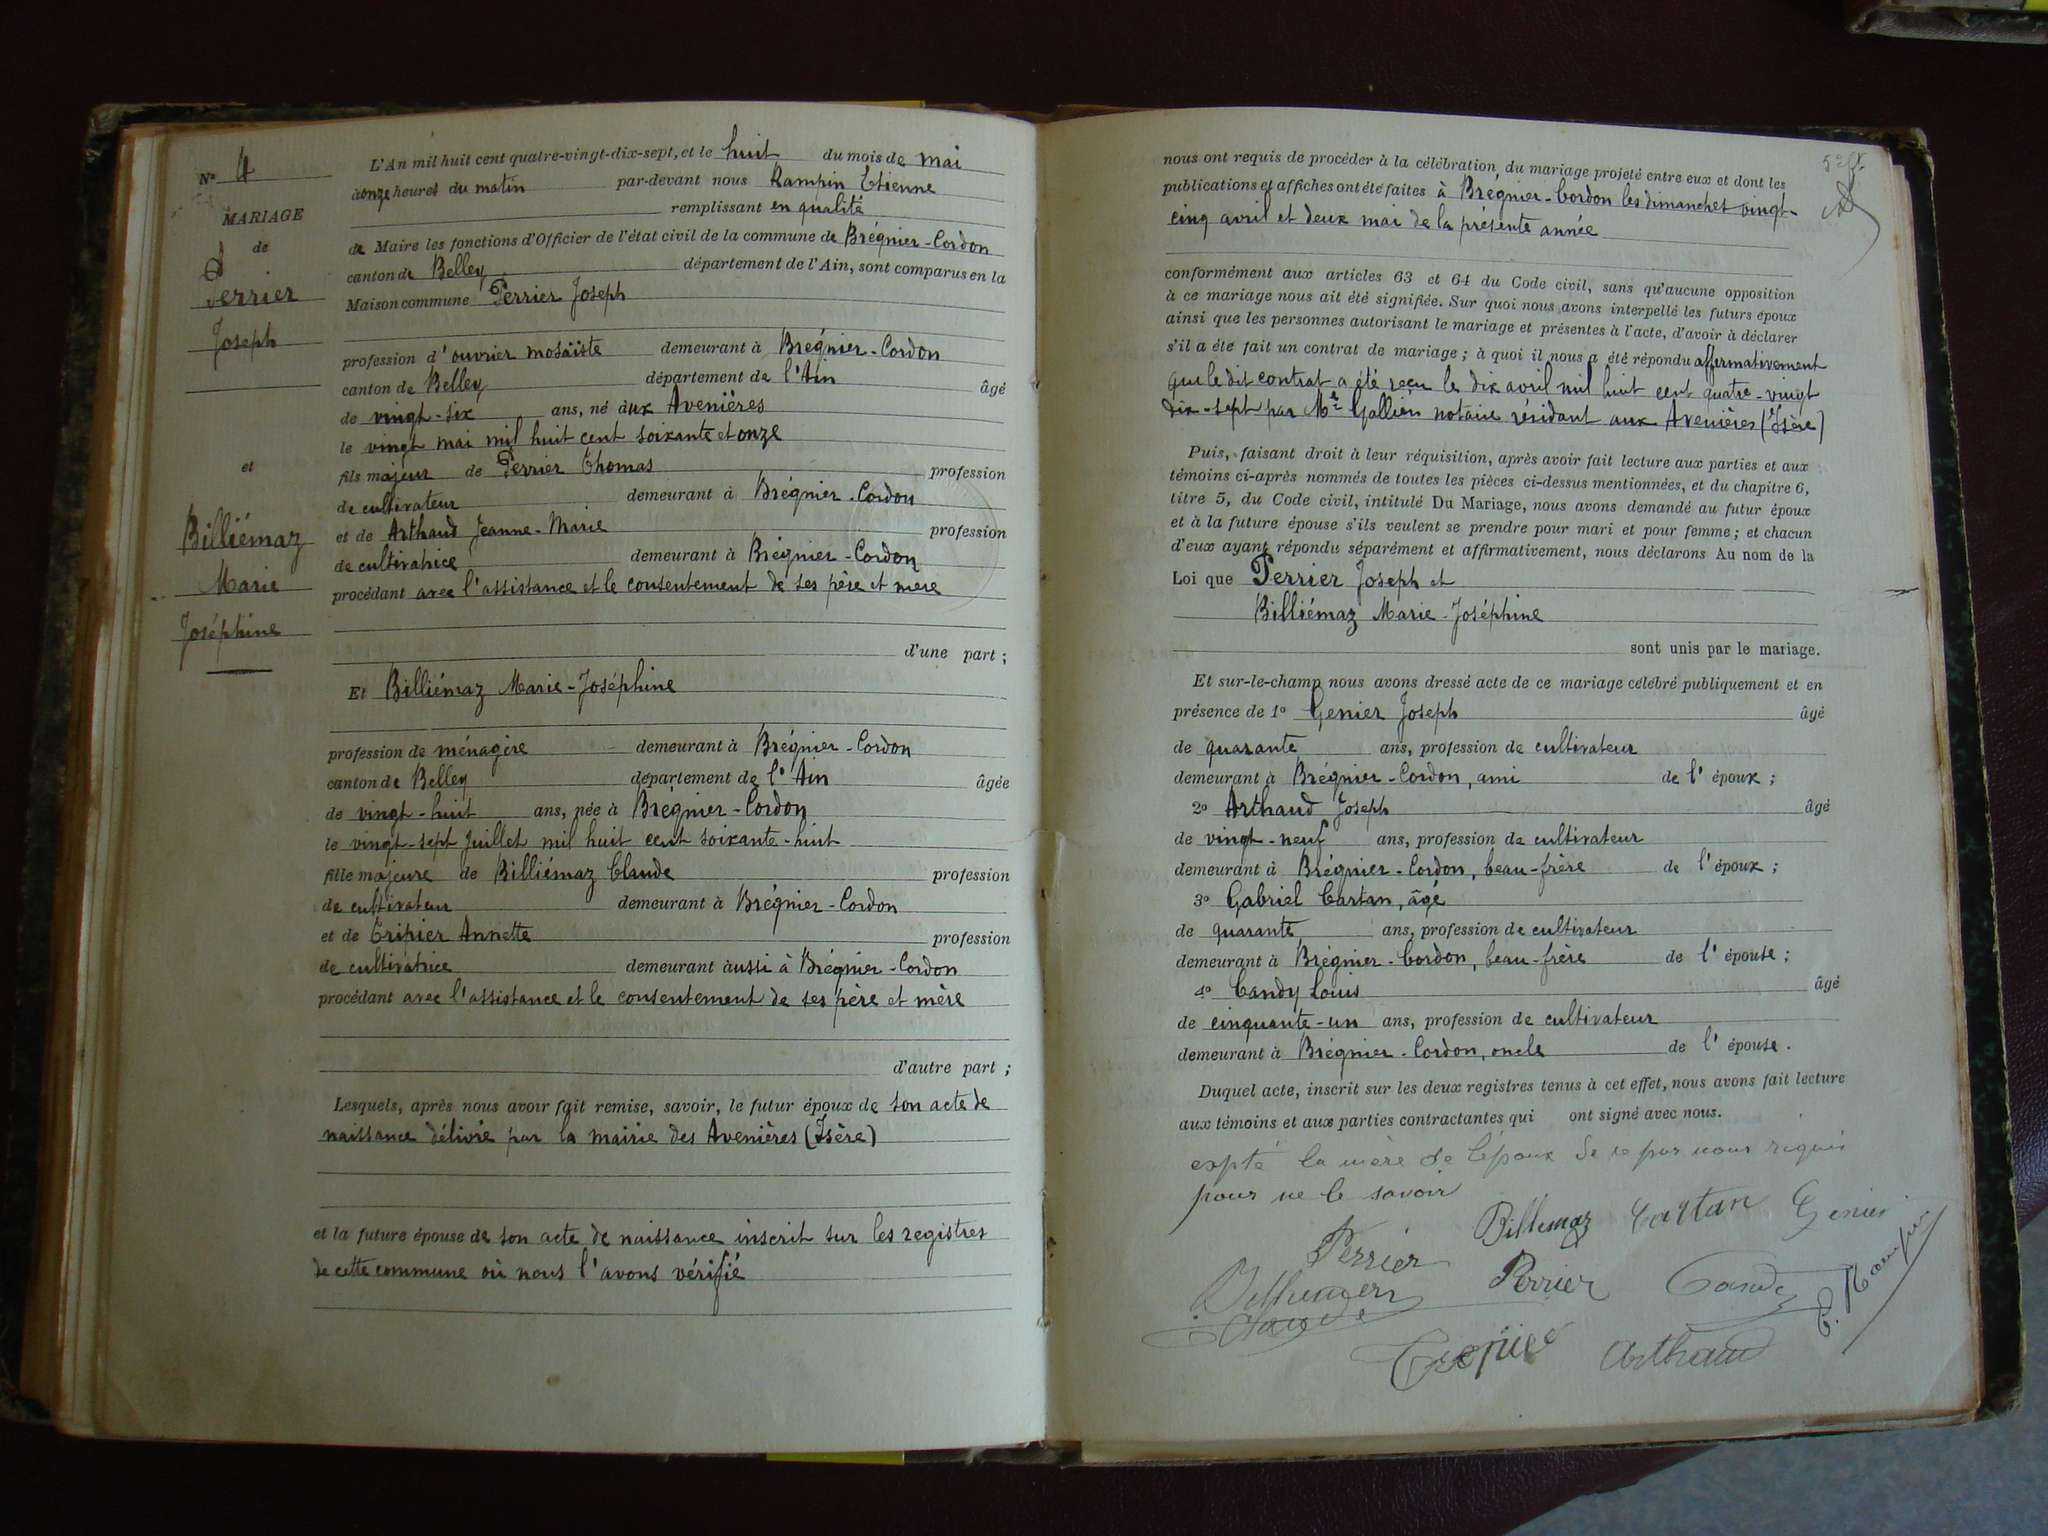 Nº 4
MARIAGE
de
Perrier
Joseph
et
Billiémaz
Marie
Joséphine
L'An mil huit cent quatre-vingt-dix-sept, et le huit du mois de mai
à onze heures du matin par-devant nous Rampin Etienne
remplissant en qualité
de Maire les fonctions d'Officier de l'état civil de la commune de Brégnier-Cordon
canton de Belley département de l'Ain, sont comparus en la
Maison commune Perrier Joseph
profession d'ouvrier mosaïste demeurant à Brégnier-Cordon
canton de Belley département de l'Ain âgé
de vingt-six ans, né aux Avenières
le vingt mai mil huit cent soixante et onze
fils majeur de Perrier Thomas profession
de cultivateur demeurant à Brégnier-Cordon
et de Arthaud Jeanne-Marie profession
de cultivatrice demeurant à Brégnier-Cordon
procédant avec l'assistance et le consentement de ses père et mère
d'une part ;
Et Billiémaz Marie-Joséphine
profession de ménagère demeurant à Brégnier-Cordon
canton de Belley département de l'Ain âgée
de vingt-huit ans, née à Brégnier-Cordon
le vingt-sept Juillet mil huit cent soixante-huit
fille majeure de Billiémaz Claude profession
de cultivateur demeurant à Brégnier-Cordon
et de Tripier Annette profession
de cultivatrice demeurant aussi à Brégnier-Cordon
procédant avec l'assistance et le consentement de ses père et mère
d'autre part ;
Lesquels, après nous avoir fait remise, savoir, le futur époux de son acte de
naissance délivré par la mairie des Avenières (Isère)
et la future épouse de son acte de naissance inscrit sur les registres
de cette commune où nous l'avons vérifié
nous ont requis de procéder à la célébration du mariage projeté entre eux et dont les
publications et affiches ont été faites à Brégnier-Cordon les dimanches vingt-
cinq avril et deux mai de la présente année
conformément aux articles 63 et 64 du Code civil, sans qu'aucune opposition
à ce mariage nous ait été signifiée. Sur quoi nous avons interpellé les futurs époux
ainsi que les personnes autorisant le mariage et présentes à l'acte, d'avoir à déclarer
s'il a été fait un contrat de mariage ; à quoi il nous a été répondu affirmativement
que le dit contrat a été reçu le dix avril mil huit cent quatre-vingt
dix-sept par Me Gallien notaire résidant aux Avenières (Isère)
Puis, faisant droit à leur réquisition, après avoir fait lecture aux parties et aux
témoins ci-après nommés de toutes les pièces ci-dessus mentionnées, et du chapitre 6,
titre 5, du Code civil, intitulé Du Mariage, nous avons demandé au futur époux
et à la future épouse s'ils veulent se prendre pour mari et pour femme ; et chacun
d'eux ayant répondu séparément et affirmativement, nous déclarons Au nom de la
Loi que Perrier Joseph et
Billiémaz Marie-Joséphine
sont unis par le mariage.
Et sur-le-champ nous avons dressé acte de ce mariage célébré publiquement et en
présence de 1º Genier Joseph âgé
de quarante ans, profession de cultivateur
demeurant à Brégnier-Cordon, ami de l'époux ;
2º Arthaud Joseph âgé
de vingt-neuf ans, profession de cultivateur
demeurant à Brégnier-Cordon, beau-frère de l'époux ;
3º Gabriel Cartan, âgé
de quarante ans, profession de cultivateur
demeurant à Brégnier-Cordon, beau-frère de l'épouse ;
4º Candy Louis âgé
de cinquante-un ans, profession de cultivateur
demeurant à Brégnier-Cordon, oncle de l'épouse.
Duquel acte, inscrit sur les deux registres tenus à cet effet, nous avons fait lecture
aux témoins et aux parties contractantes qui ont signé avec nous.
expté la mère de l'époux de ce par nous requis
pour ne le savoir
Billemaz Cartan Genier
Perrier
Perrier Candy E. Rampin
Claude
Arthaud